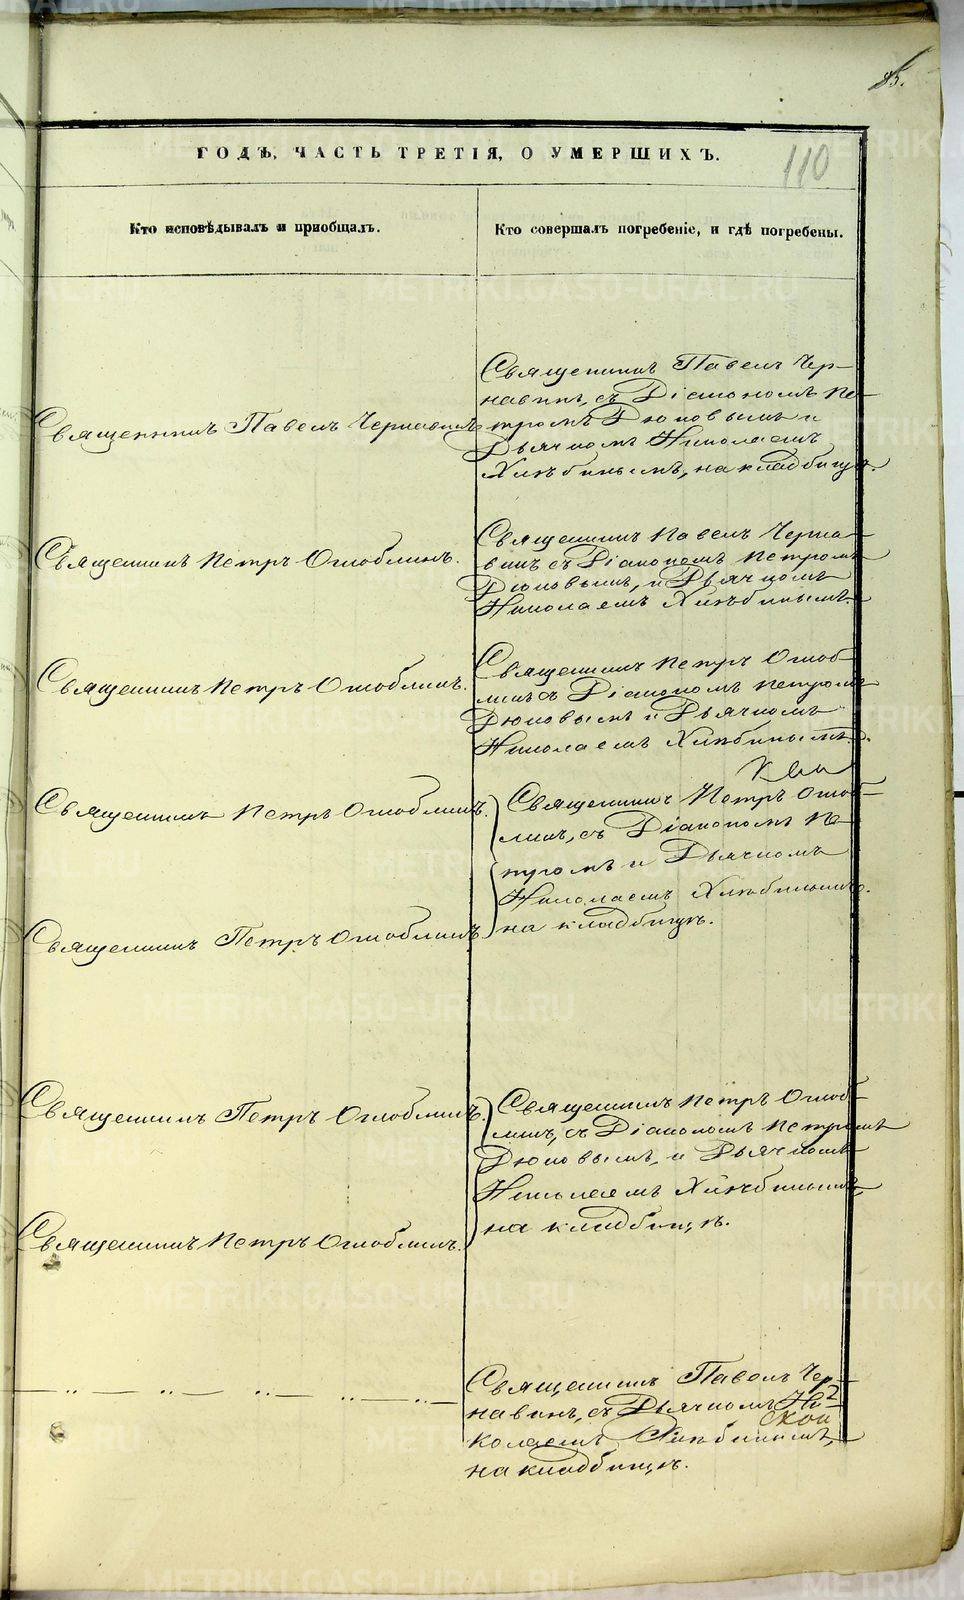 85.
ГОДЪ, ЧАСТЬ ТРЕТІЯ, О УМЕРШИХЪ.
110
Кто исповѣдывалъ и пріобщалъ.
Кто совершалъ погребеніе, и гдѣ погребены.
Священникъ Павелъ Чернавинъ
Священникъ Павелъ Чер-
навинъ, съ Діакономъ Пе-
тромъ Дюковымъ и
Дьячкомъ Николаемъ
Хлѣбинымъ, на кладбищѣ.
Священникъ Петръ Оглоблинъ.
Священникъ Павелъ Черна-
винъ съ Діакономъ Петромъ
Дюковымъ, и Дьячкомъ
Николаемъ Хлѣбинымъ.
Священникъ Петръ Оглоблинъ.
Священникъ Петръ Оглоб-
линъ съ Діакономъ Петромъ
Дюковымъ и Дьячкомъ
Николаемъ Хлѣбинымъ.
Священникъ Петръ Оглоблинъ.
Священникъ Петръ Оглоб-
линъ, съ Діакономъ Пе-
тромъ и Дьячкомъ
Николаемъ Хлѣбинымъ.
на кладбищѣ.
Священникъ Петръ Оглоблинъ
Священникъ Петръ Оглоблинъ.
Священникъ Петръ Оглоб-
линъ, съ Діакономъ Петромъ
Дюковымъ, и Дьячкомъ
Николаемъ Хлѣбинымъ,
на кладбищѣ.
Священникъ Петръ Оглоблинъ.
Священникъ Павелъ Чер-
навинъ, съ Дьячкомъ Ни-
колаемъ Хлѣбинымъ,
на кладбищѣ.
METRIKI.GASO-URAL.RU